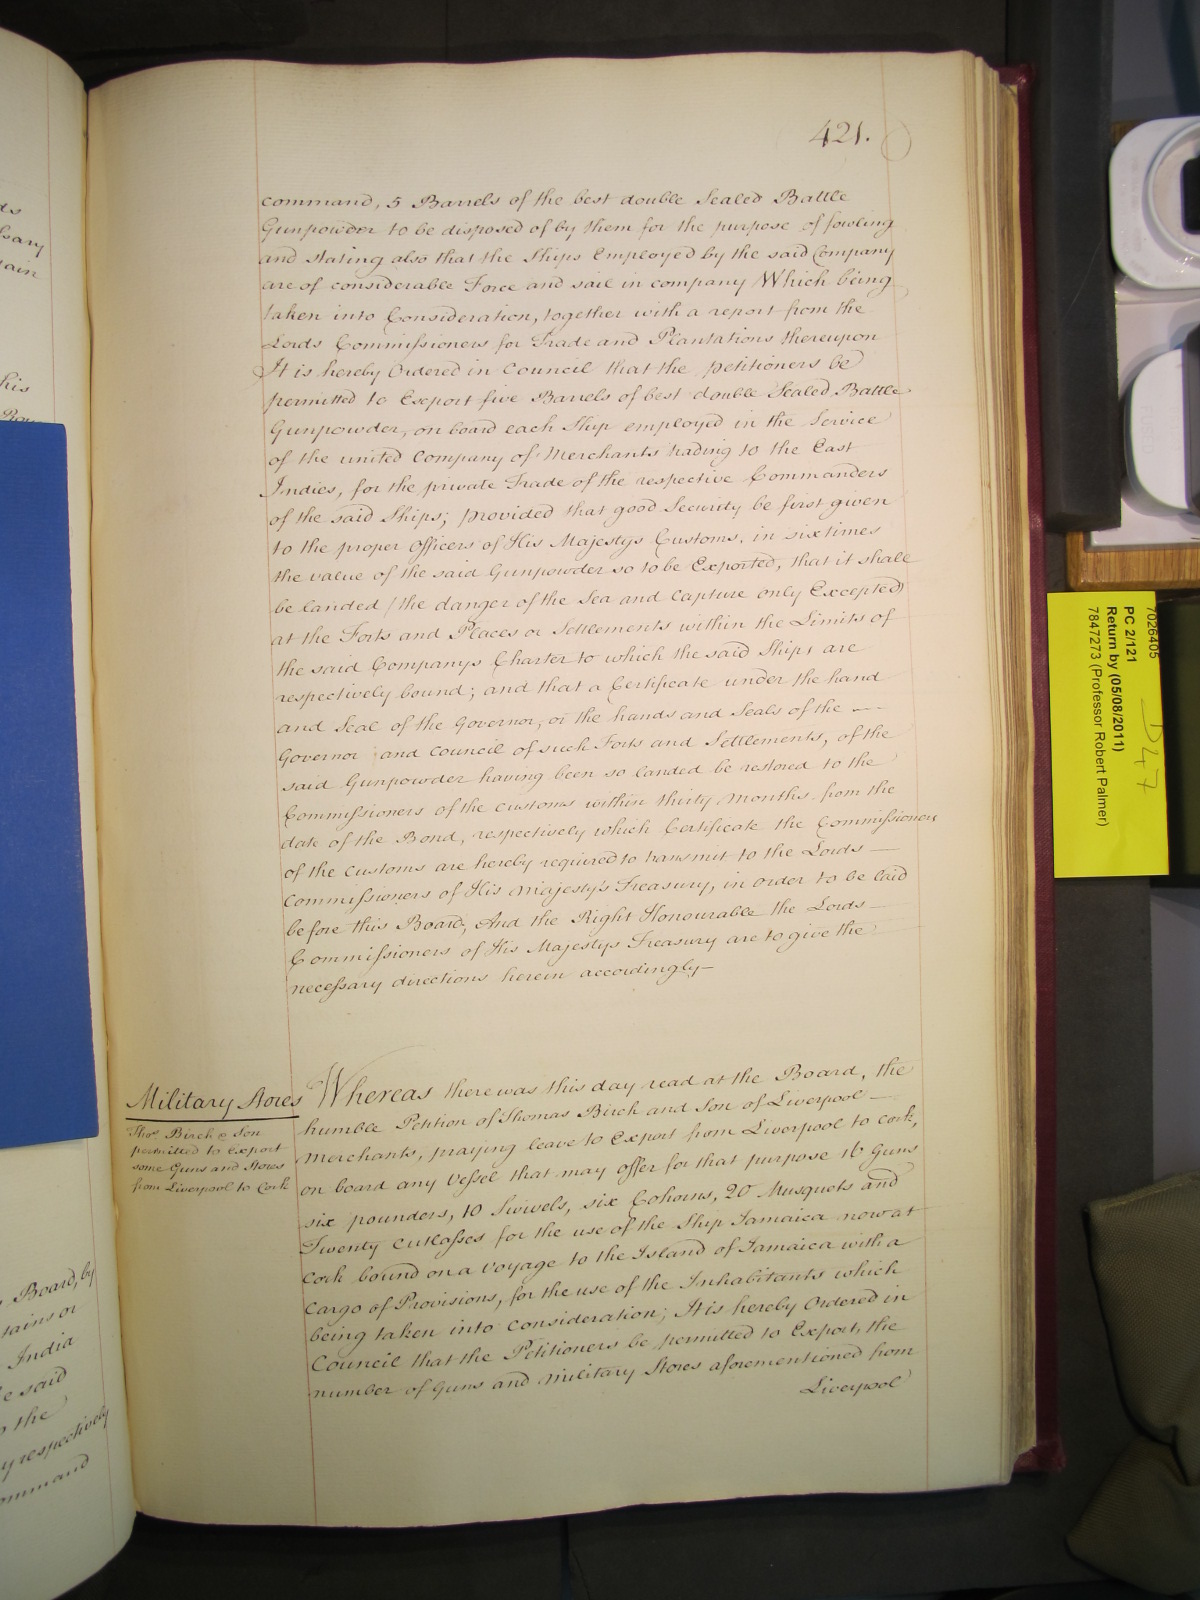 421.
command, 5 Barrels of the best double Sealed Battle
Gunpowder to be disposed of by them for the purpose of fowling
and stating also that the Ships Employed by the said Company
are of considerable Force and sail in company Which being
taken into Consideration, together with a report from the
Lords Commissioners for Trade and Plantations thereupon
It is hereby Ordered in Council that the petitioners be
permitted to Export five Barrels of best double Sealed Battle
Gunpowder, on board each Ship employed in the Service
of the united Company of Merchants trading to the East
Indies, for the private Trade of the respective Commanders
of the said Ships; provided that good Security be first given
to the proper Officers of His Majestys Customs, in six times
the value of the said Gunpowder so to be Exported, that it shall
be landed /the danger of the Sea and Capture only Excepted)
at the Forts and Places or Settlements within the Limits of
the said Companys Charter to which the said Ships are
respectively bound; and that a Certificate under the hand
and Seal of the Governor, or the hands and Seals of the
Governor and Council of such Forts and Settlements, of the
said Gunpowder having been so landed be restored to the
Commissioners of the Customs within thirty Months from the
date of the Bond, respectively which Certificate the Commissioners
of the Customs are hereby required to transmit to the Lords —
Commissioners of His Majesty's Treasury, in order to be laid
before this Board; And the Right Honourable the Lords —
Commissioners of His Majestys Treasury are to give the
necessary directions herein accordingly —
Military Stores
Thos. Birch & Son
permitted to Export
some Guns and Stores
from Liverpool to Cork
Whereas there was this day read at the Board, the
humble Petition of Thomas Birch and Son of Liverpool —
Merchants, praying leave to Export from Liverpool to Cork,
on board any Vessel that may offer for that purpose 16 Guns
six pounders, 10 Swivels, six Cohorns, 20 Musquets and
Twenty Cutlasses for the use of the Ship Jamaica now at
Cork bound on a Voyage to the Island of Jamaica with a
Cargo of Provisions, for the use of the Inhabitants which
being taken into Consideration; It is hereby Ordered in
Council that the Petitioners be permitted to Export, the
number of Guns and Military Stores aforementioned from
Liverpool
his
Board, by
tains or
India
said
the
respectively
command
7026405
PC 2/121
Return by (05/08/2011)
7847273 (Professor Robert Palmer)
D47